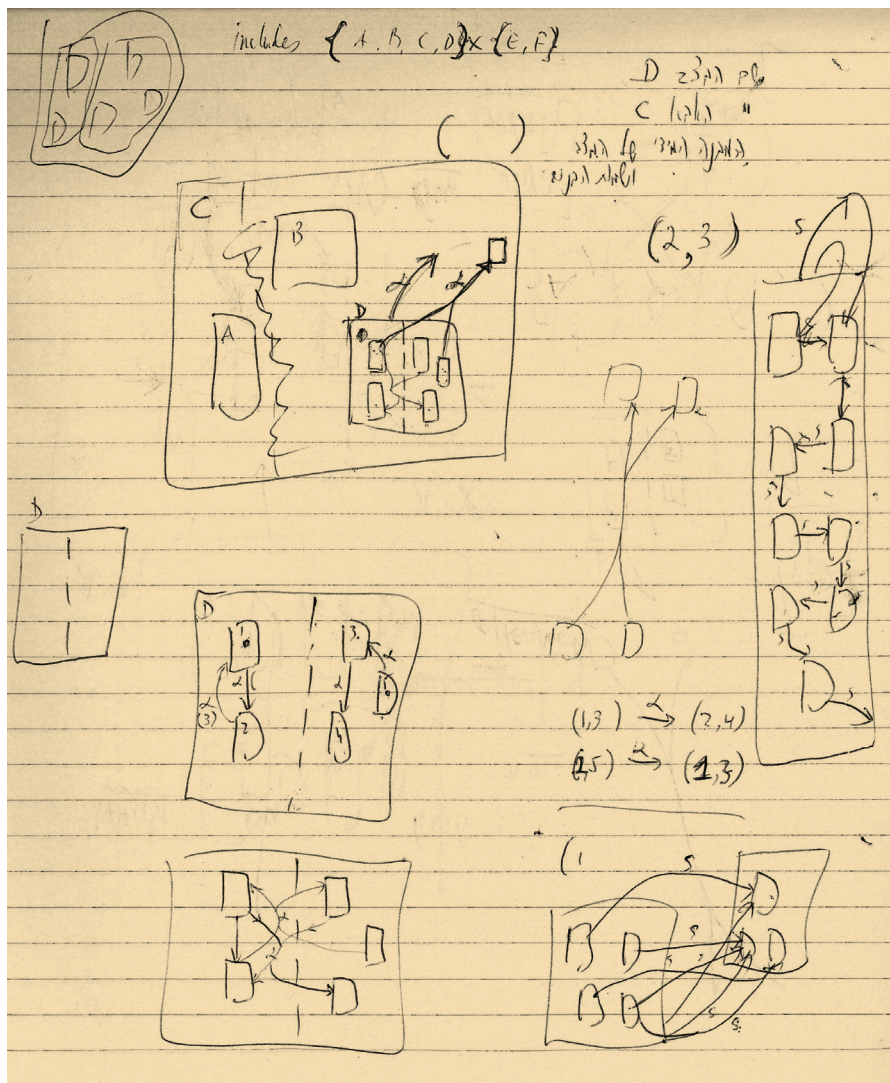 includes {A, B, C, D} x {E, F}
שם המצב D
" האבא C
המבנה המידי של המצב
ושמות הבנים
( )
C
B
(2,3)
S
α
α
D
A
D
D
1
3
α
α
α
α
(3)
2
4
(1,3) →α (2,4)
(2,5) →α (1,3)
(1
S
S
S
S